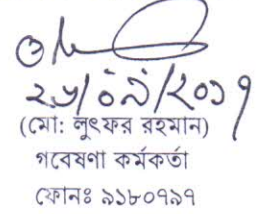 ২৮/০৯/২০১৭
(মো: লুৎফর রহমান)
গবেষণা কর্মকর্তা
ফোনঃ ৯১৮০৭৯৭